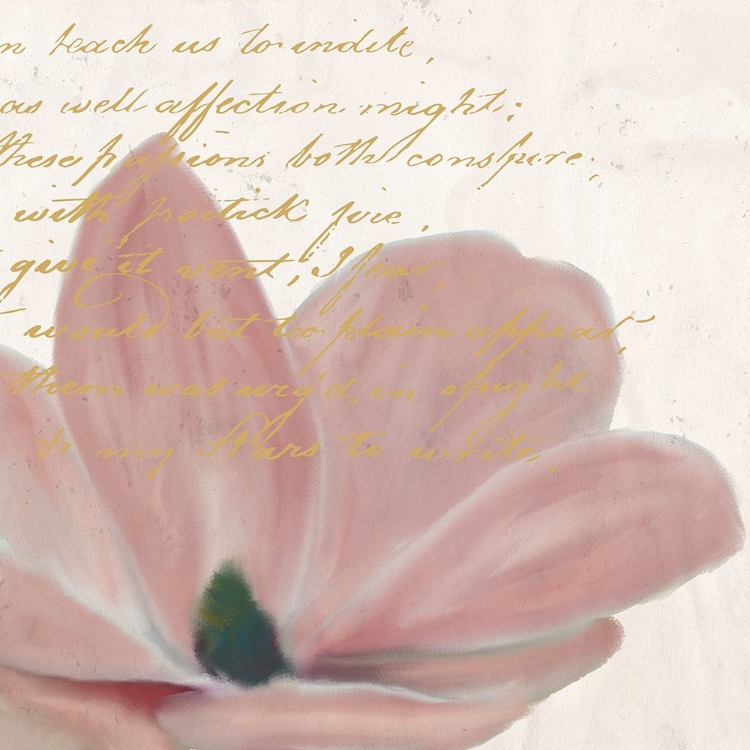 n teach us to indite,
as well affection might;
these passions both conspire,
with poetick fire,
give it vent, I fear,
would but too plain appear,
them was urg'd, in spight
to my Stars to write,